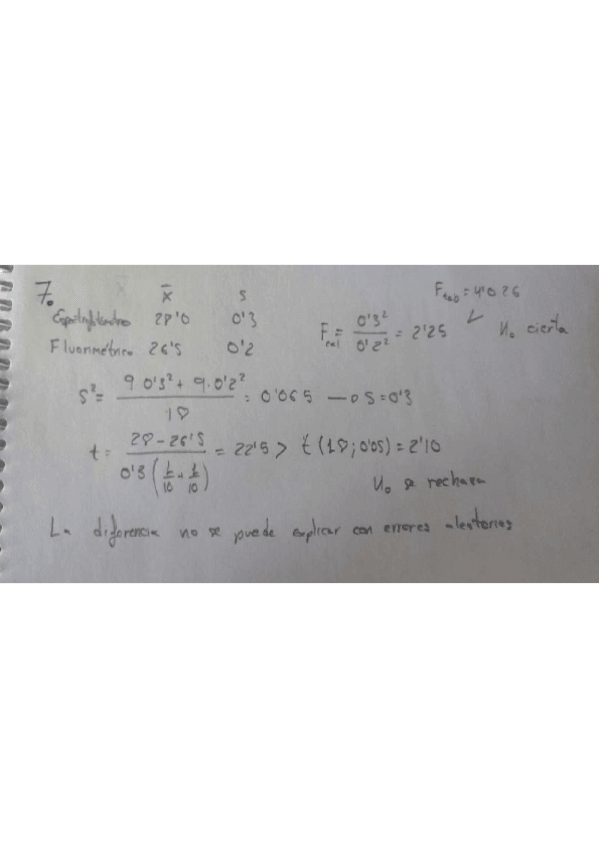 7.
x̄ s
Espectrofotométrico 28'0 0'3
Fluorimétrico 26'5 0'2
F tab = 4'026
F cal = 0'3² / 0'2² = 2'25 ✓ H₀ cierta
S² = (9 0'3² + 9·0'2²) / 18 = 0'065 → S = 0'3
t = (28 - 26'5) / (0'3 (1/10 + 1/10)) = 22'5 > t (18; 0'05) = 2'10
H₀ se rechaza
La diferencia no se puede explicar con errores aleatorios